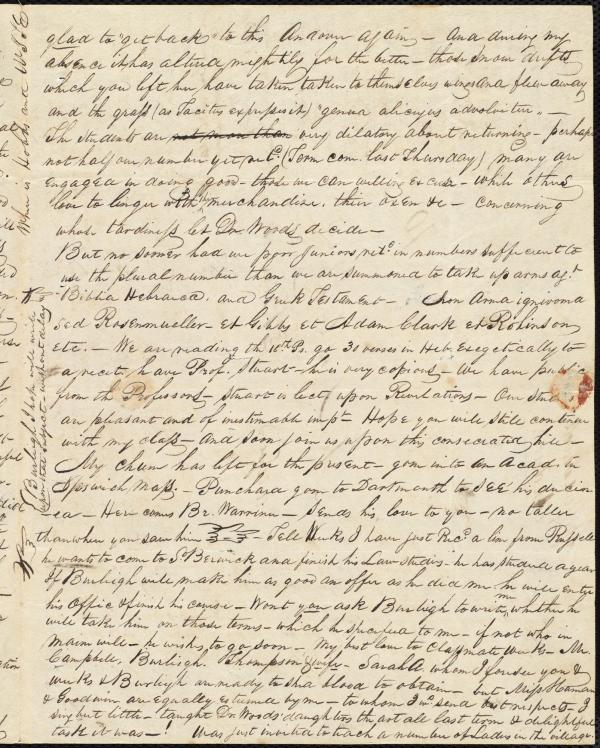 glad to "get back" to this Andover again - And during my
absence it has altered mightily for the better - those snow drifts
which you left here have taken taken to themselves wings and flew away
and the grass (as Tacitus expresses it) "genua alicujus advolviter" -
The students are not more than very dilatory about returning - perhaps
not half our number yet retd. (Term com. last Thursday) many are
engaged in doing good - those we can willing excuse - while others
love to linger with merchandise, their oxen &c - concerning
whose tardiness let Dr. Woods decide -
But no sooner had we poor Juniors retd. in numbers sufficient to
use the plural number than we are summoned to take up arms agt.
Biblia Hebraica, and Greek Testament - Non arma ignivoma
sed Rosenmueller - et Gibbs et Adam Clark et Robinson,
etc. - We are reading the 16th Ps. go 30 verses in Heb. Exegetically to
a recit. have Prof. Stuart - he is very copious - We have
from the Professors - Stuart is lect. upon Revelations - Our
are pleasant and of inestimable impt. Hope you will still continue
with my class - and soon join us upon this consecrated hill -
My chum has left for the present - gone into an Acad. in
Ipswich Mass. - Punchard gone to Dartmouth to SEE his
- Here comes Br. Warriner - sends his love to you - no taller
than when you saw him - Tell Weeks I have just Recd. a line from Russell
he wants to come to S. Berwick and finish his Law studies - he has studied a year
If Burleigh will make him as good an offer as he did me he will enter
his Office & finish his course - Wont you ask Burleigh to write me whether he
will take him on those terms - which he specified to me - if not who in
Maine will - he wishes to go soon - My best love to Classmate Weeks - Mr.
Campbell, Burleigh. Thompson & wife - Sarah whom I foresee you &
Weeks & Burleigh are ready to shed blood to obtain - but Miss Hanna
& Goodwin are equally esteemed by me - to whom I send best respects - I
sing but little - taught Dr Woods' daughters the art all last term & delightful
task it was - ! Was just invited to teach a number of Ladies in the village.
When is Hobbs and
Burleigh I hope will write
upon this subject without delay